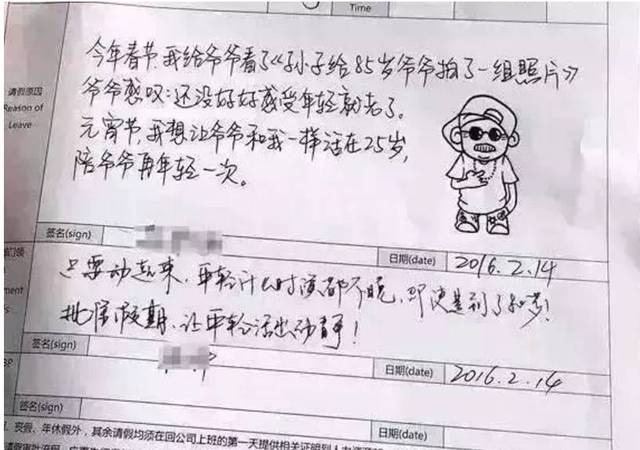 Time
今年春节,我给爷爷看了《孙子给85岁爷爷拍了一组照片》
请假原因
Reason of
Leave
爷爷感叹:还没好好感受年轻就老了。
元宵节,我想让爷爷和我一样活在25岁,
陪爷爷再年轻一次。
签名(sign)
日期(date)
2016.2.14
只要动起来,年轻什么时候都不晚,即使是到了80岁!
批准假期,让年轻活出动静!
签名(sign)
日期(date)
2016.2.14
签名(sign)
日期(date)
丧假、年休假外,其余请假均须在回公司上班的第一天提供相关证明到人力资源